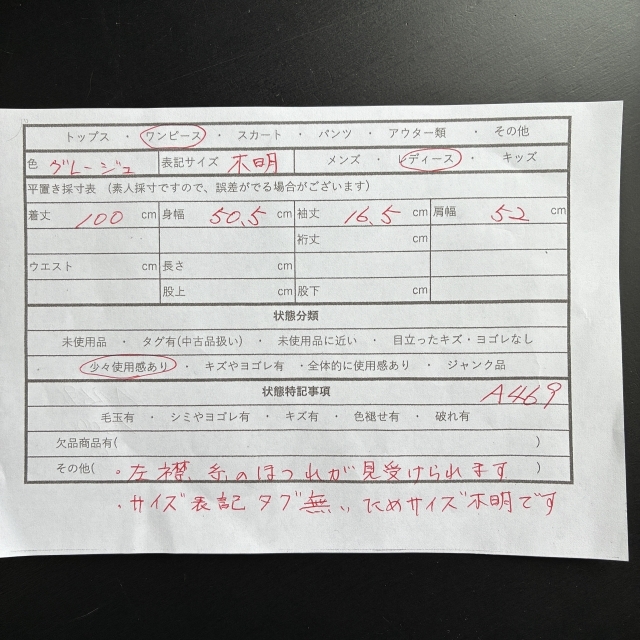 トップス ・ ワンピース ・ スカート ・ パンツ ・ アウター類 ・ その他
色 グレージュ 表記サイズ 不明 メンズ ・ レディース ・ キッズ
平置き採寸表 (素人採寸ですので、誤差がでる場合がございます)
着丈 100 cm 身幅 50.5 cm 袖丈 16.5 cm 肩幅 52 cm
裄丈 cm
ウエスト cm 長さ cm
股上 cm 股下 cm
状態分類
未使用品 ・ タグ有(中古品扱い) ・ 未使用品に近い ・ 目立ったキズ・ヨゴレなし
少々使用感あり ・ キズやヨゴレ有 ・全体的に使用感あり ・ ジャンク品
状態特記事項 A469
毛玉有 ・ シミやヨゴレ有 ・ キズ有 ・ 色褪せ有 ・ 破れ有
欠品商品有( )
その他( ・左襟、糸のほつれが見受けられます )
・サイズ表記タブ無いためサイズ不明です